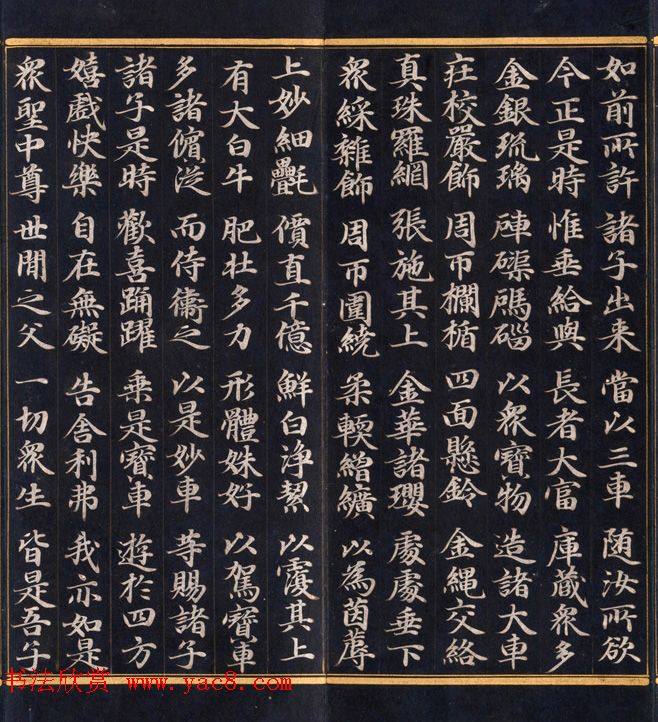 如前所許 諸子出来 當以三車 随汝所欲
今正是時 惟垂給與 長者大富 庫藏眾多
金銀琉璃 硨磲碼碯 以眾寶物 造諸大車
莊校嚴飾 周帀欄楯 四面懸鈴 金繩交絡
真珠羅網 張施其上 金華諸瓔 處處垂下
眾綵雜飾 周帀圍繞 柔軟繒纊 以為茵蓐
上妙細㲲 價直千億 鮮白淨潔 以覆其上
有大白牛 肥壮多力 形體姝好 以駕寶車
多諸儐從 而侍衛之 以是妙車 等賜諸子
諸子是時 歡喜踊躍 乗是寶車 遊於四方
嬉戲快樂 自在無礙 告舍利弗 我亦如是
眾聖中尊 世間之父 一切眾生 皆是吾子
书法欣赏 www.yac8.com